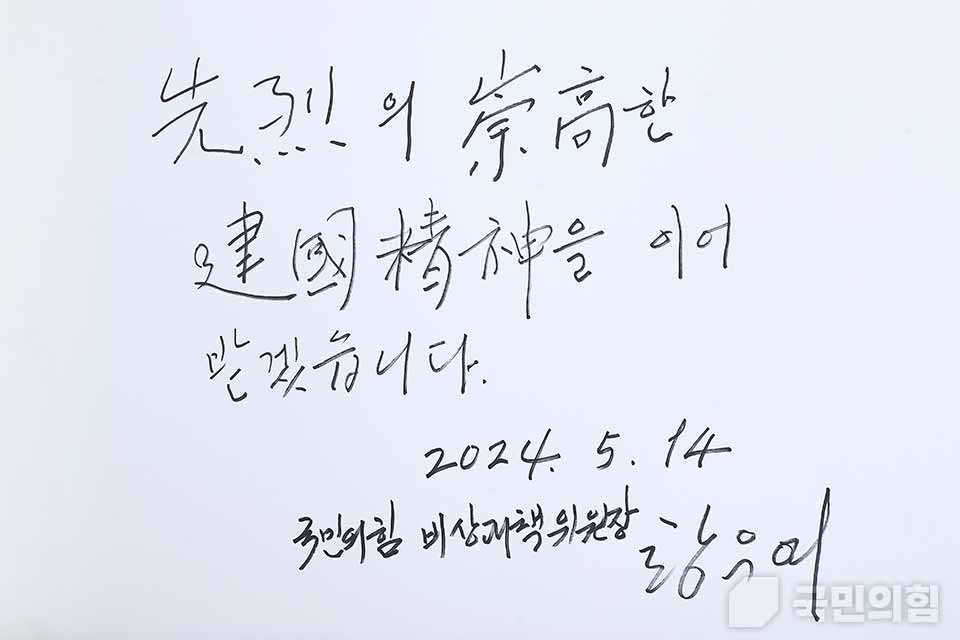 先烈의 崇高한
建國精神을 이어
받겠습니다.
2024. 5. 14
국민의힘 비상대책위원장 황우여
국민의힘